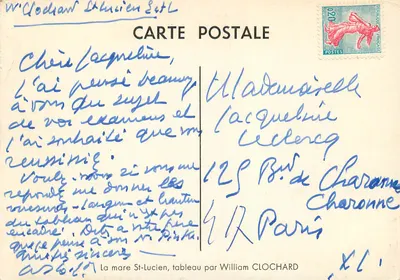 Wm Clochard St-Lucien S et L
CARTE POSTALE
0,20
Chère Jacqueline,
J'ai pensé beaucoup
à vous au sujet
de vos examens et
j'ai souhaité que vous
réussissiez.
Voulez-vous si vous me
répondez me donner les
mesures - largeur et hauteur
du tableau qui n'est pas
encadré. Dites à votre père
que je pense à son
amitié sincère
Mademoiselle
Jacqueline
Leclercq
125 Bd. de Charonne
Charonne
Paris
XI.
La mare St-Lucien, tableau par William CLOCHARD